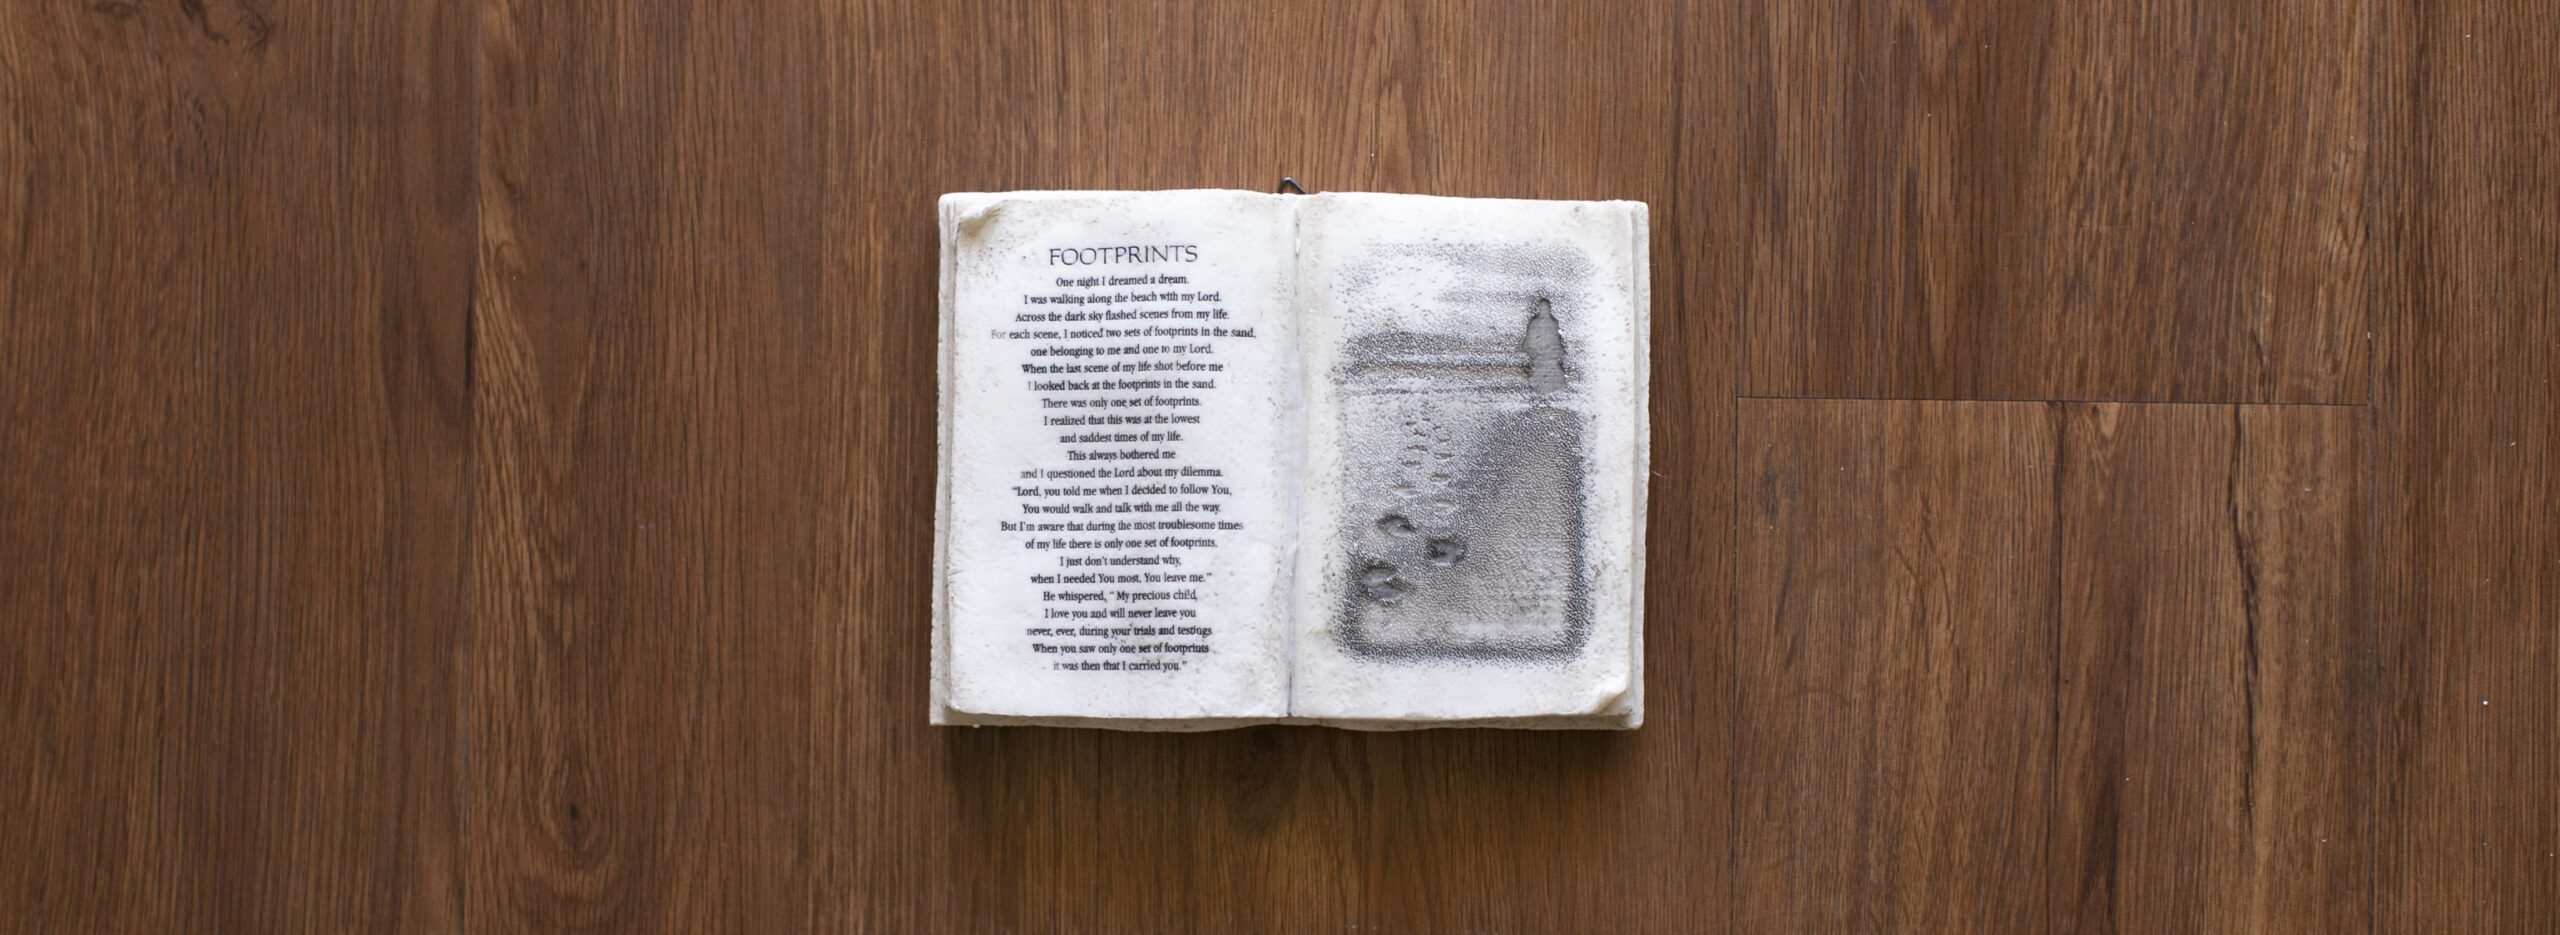 FOOTPRINTS
One night I dreamed a dream.
I was walking along the beach with my Lord.
Across the dark sky flashed scenes from my life.
For each scene, I noticed two sets of footprints in the sand,
one belonging to me and one to my Lord.
When the last scene of my life shot before me
I looked back at the footprints in the sand.
There was only one set of footprints.
I realized that this was at the lowest
and saddest times of my life.
This always bothered me
and I questioned the Lord about my dilemma.
“Lord, you told me when I decided to follow You,
You would walk and talk with me all the way.
But I'm aware that during the most troublesome times
of my life there is only one set of footprints.
I just don't understand why,
when I needed You most, You leave me.”
He whispered, “ My precious child,
I love you and will never leave you
never, ever, during your trials and testings
When you saw only one set of footprints
it was then that I carried you.”